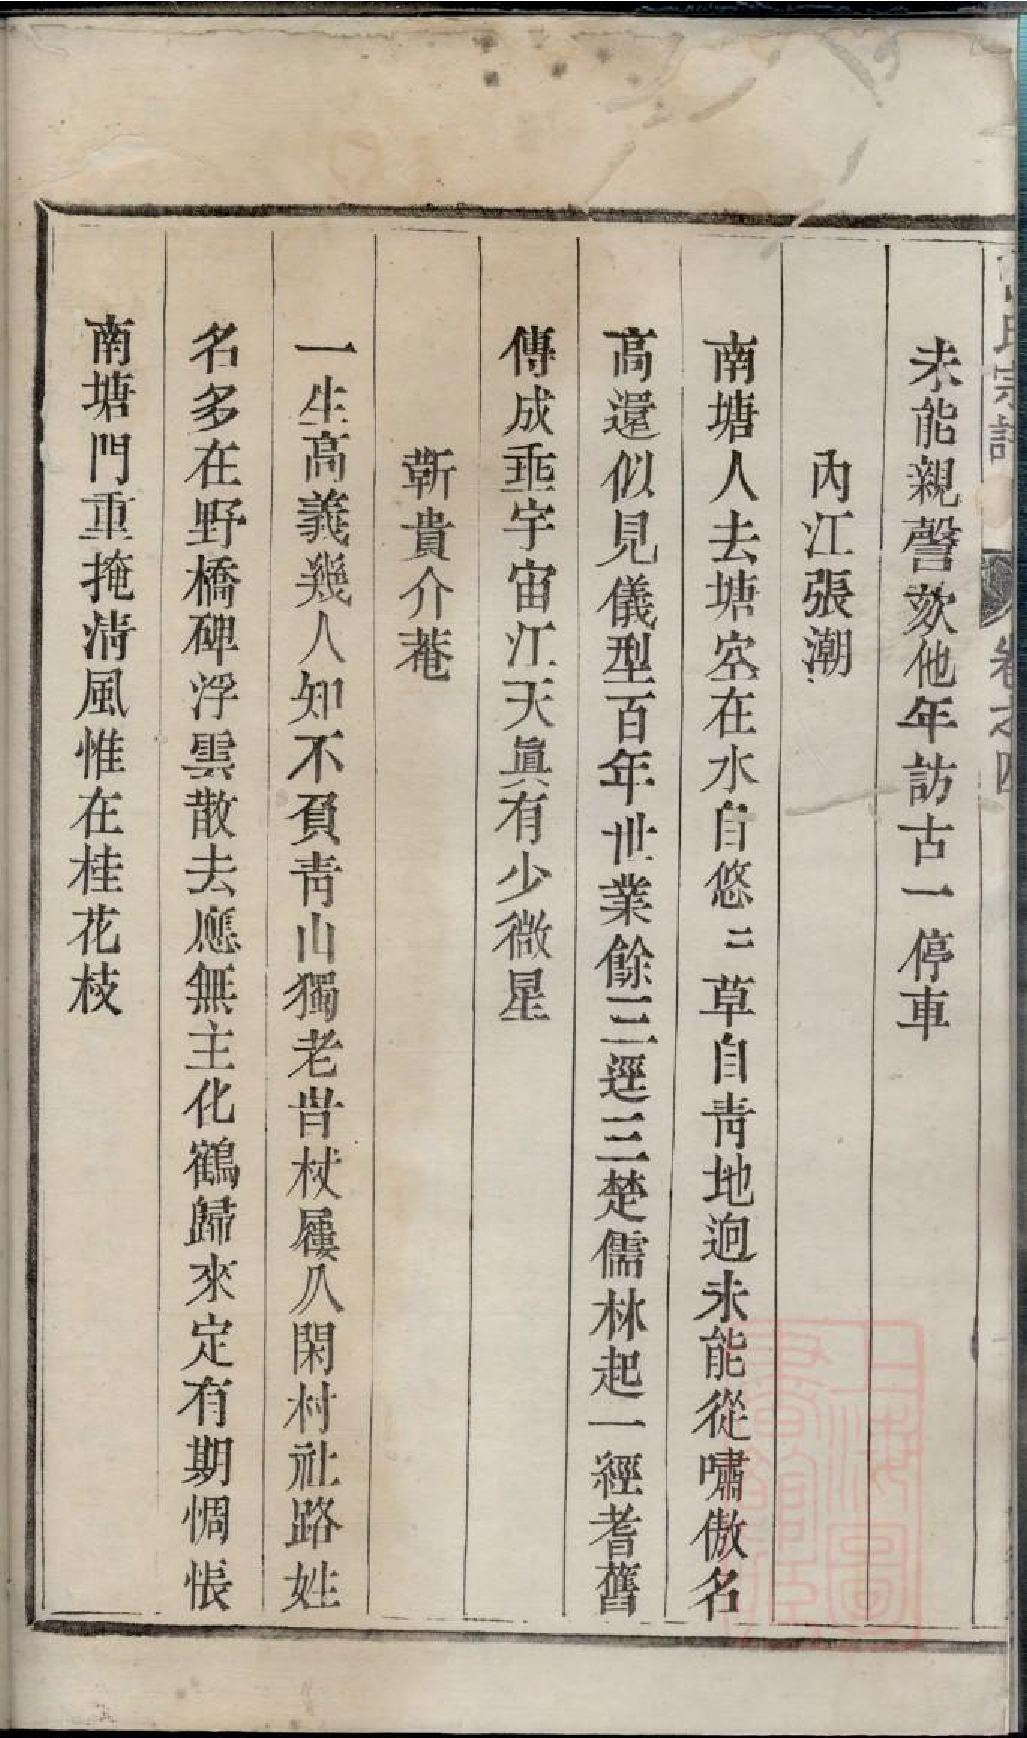 氏宗譜
卷之四
未能親謦欬他年訪古一停車
內江張潮
南塘人去塘空在水自悠〻草自靑地迥未能從嘯傲名
高還似見儀型百年世業餘三逕三楚儒林起一經耆舊
傳成垂宇宙江天眞有少微星
靳貴介菴
一生高義幾人知不負靑山獨老昔杖屨久閑村社路姓
名多在野橋碑浮雲散去應無主化鶴歸來定有期惆悵
南塘門重掩淸風惟在桂花枝
上海圖
書館藏